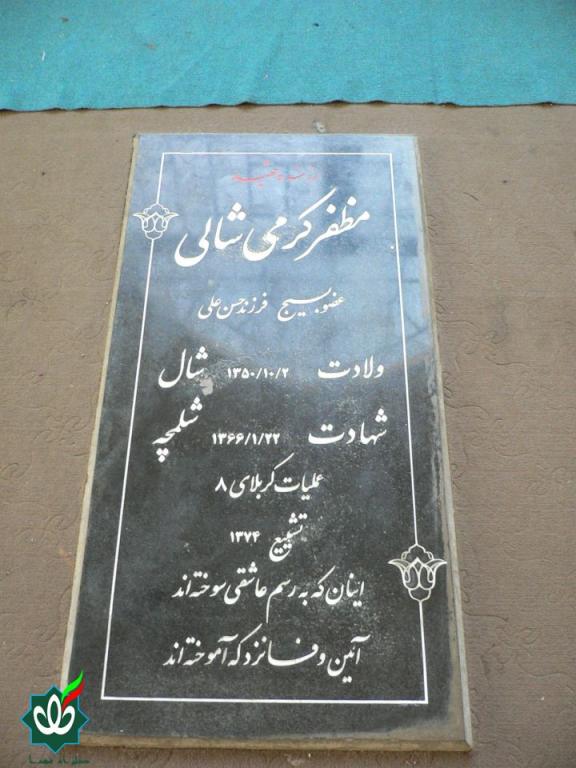 مظفر کرمی شالی
عضو بسیج فرزند حسن علی
ولادت ۱۳۵۰/۱۰/۲ شال
شهادت ۱۳۶۶/۱/۲۲ شلمچه
عملیات کربلای ۸
تشییع ۱۳۷۴
اینان که به رسم عاشقی سوخته اند
آئین وفا نزد که آموخته اند